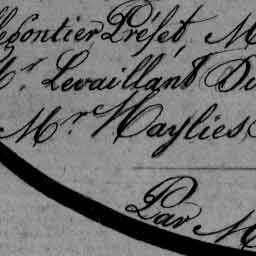 llegontier Préfet, M
Mr Levaillant Du
Mr Maylies,
Par M